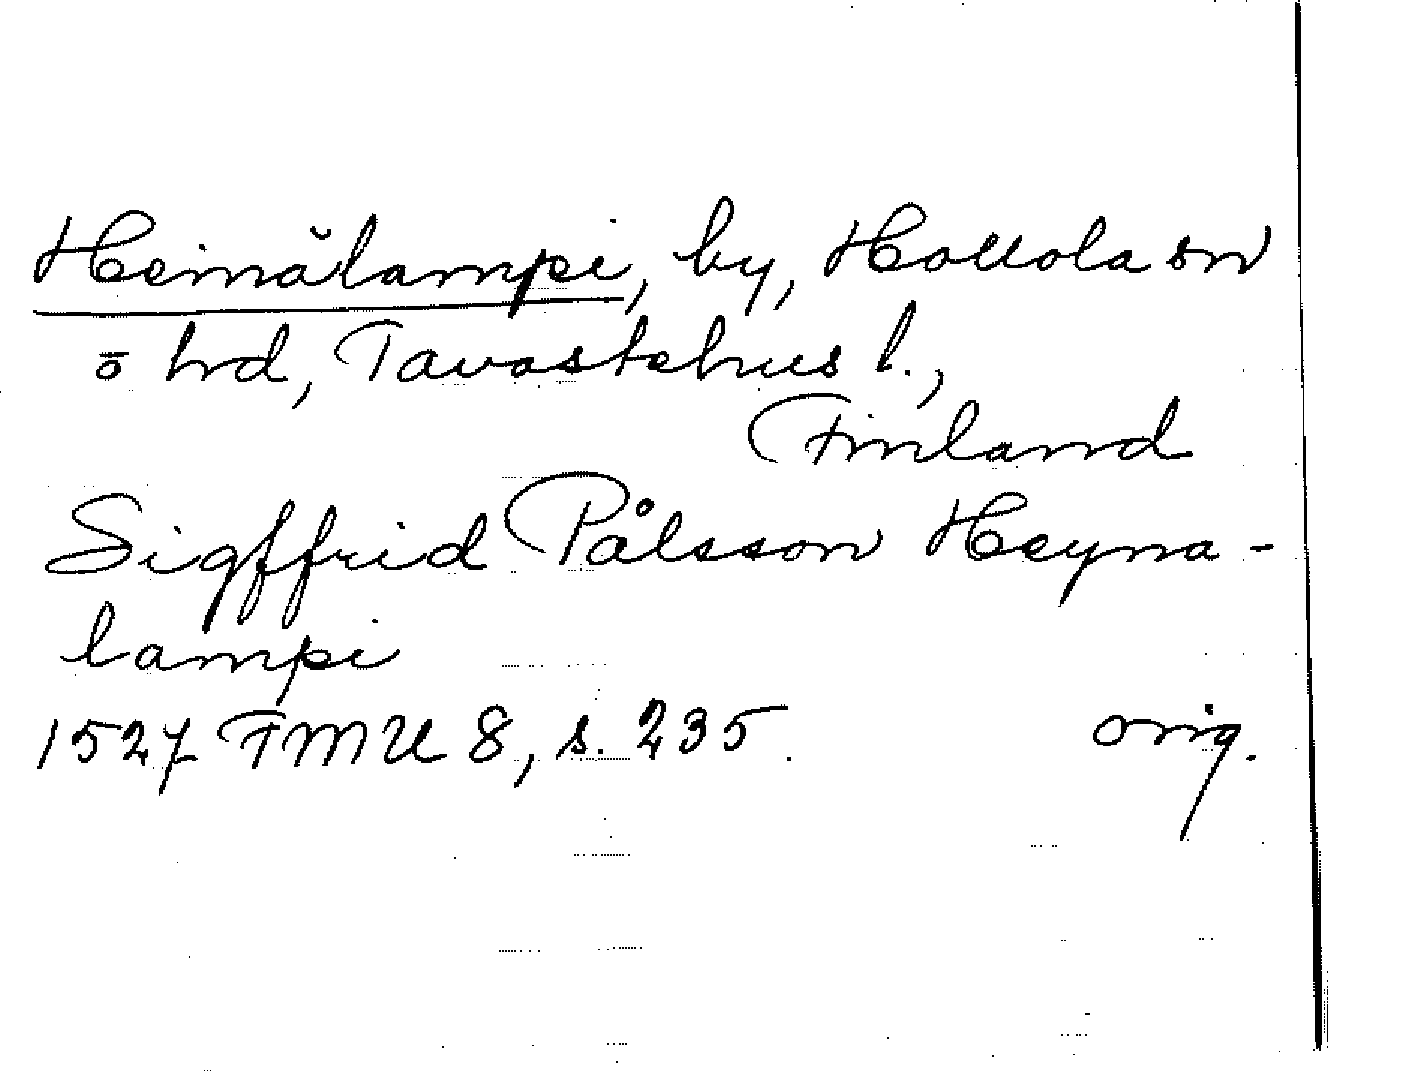 Heinälampi, by, Hollola sn
o hrd, Tavastehus l.,
Finland
Sigffrid Pålsson Heyna-
lampi
1527 FMU 8, s. 235. orig.